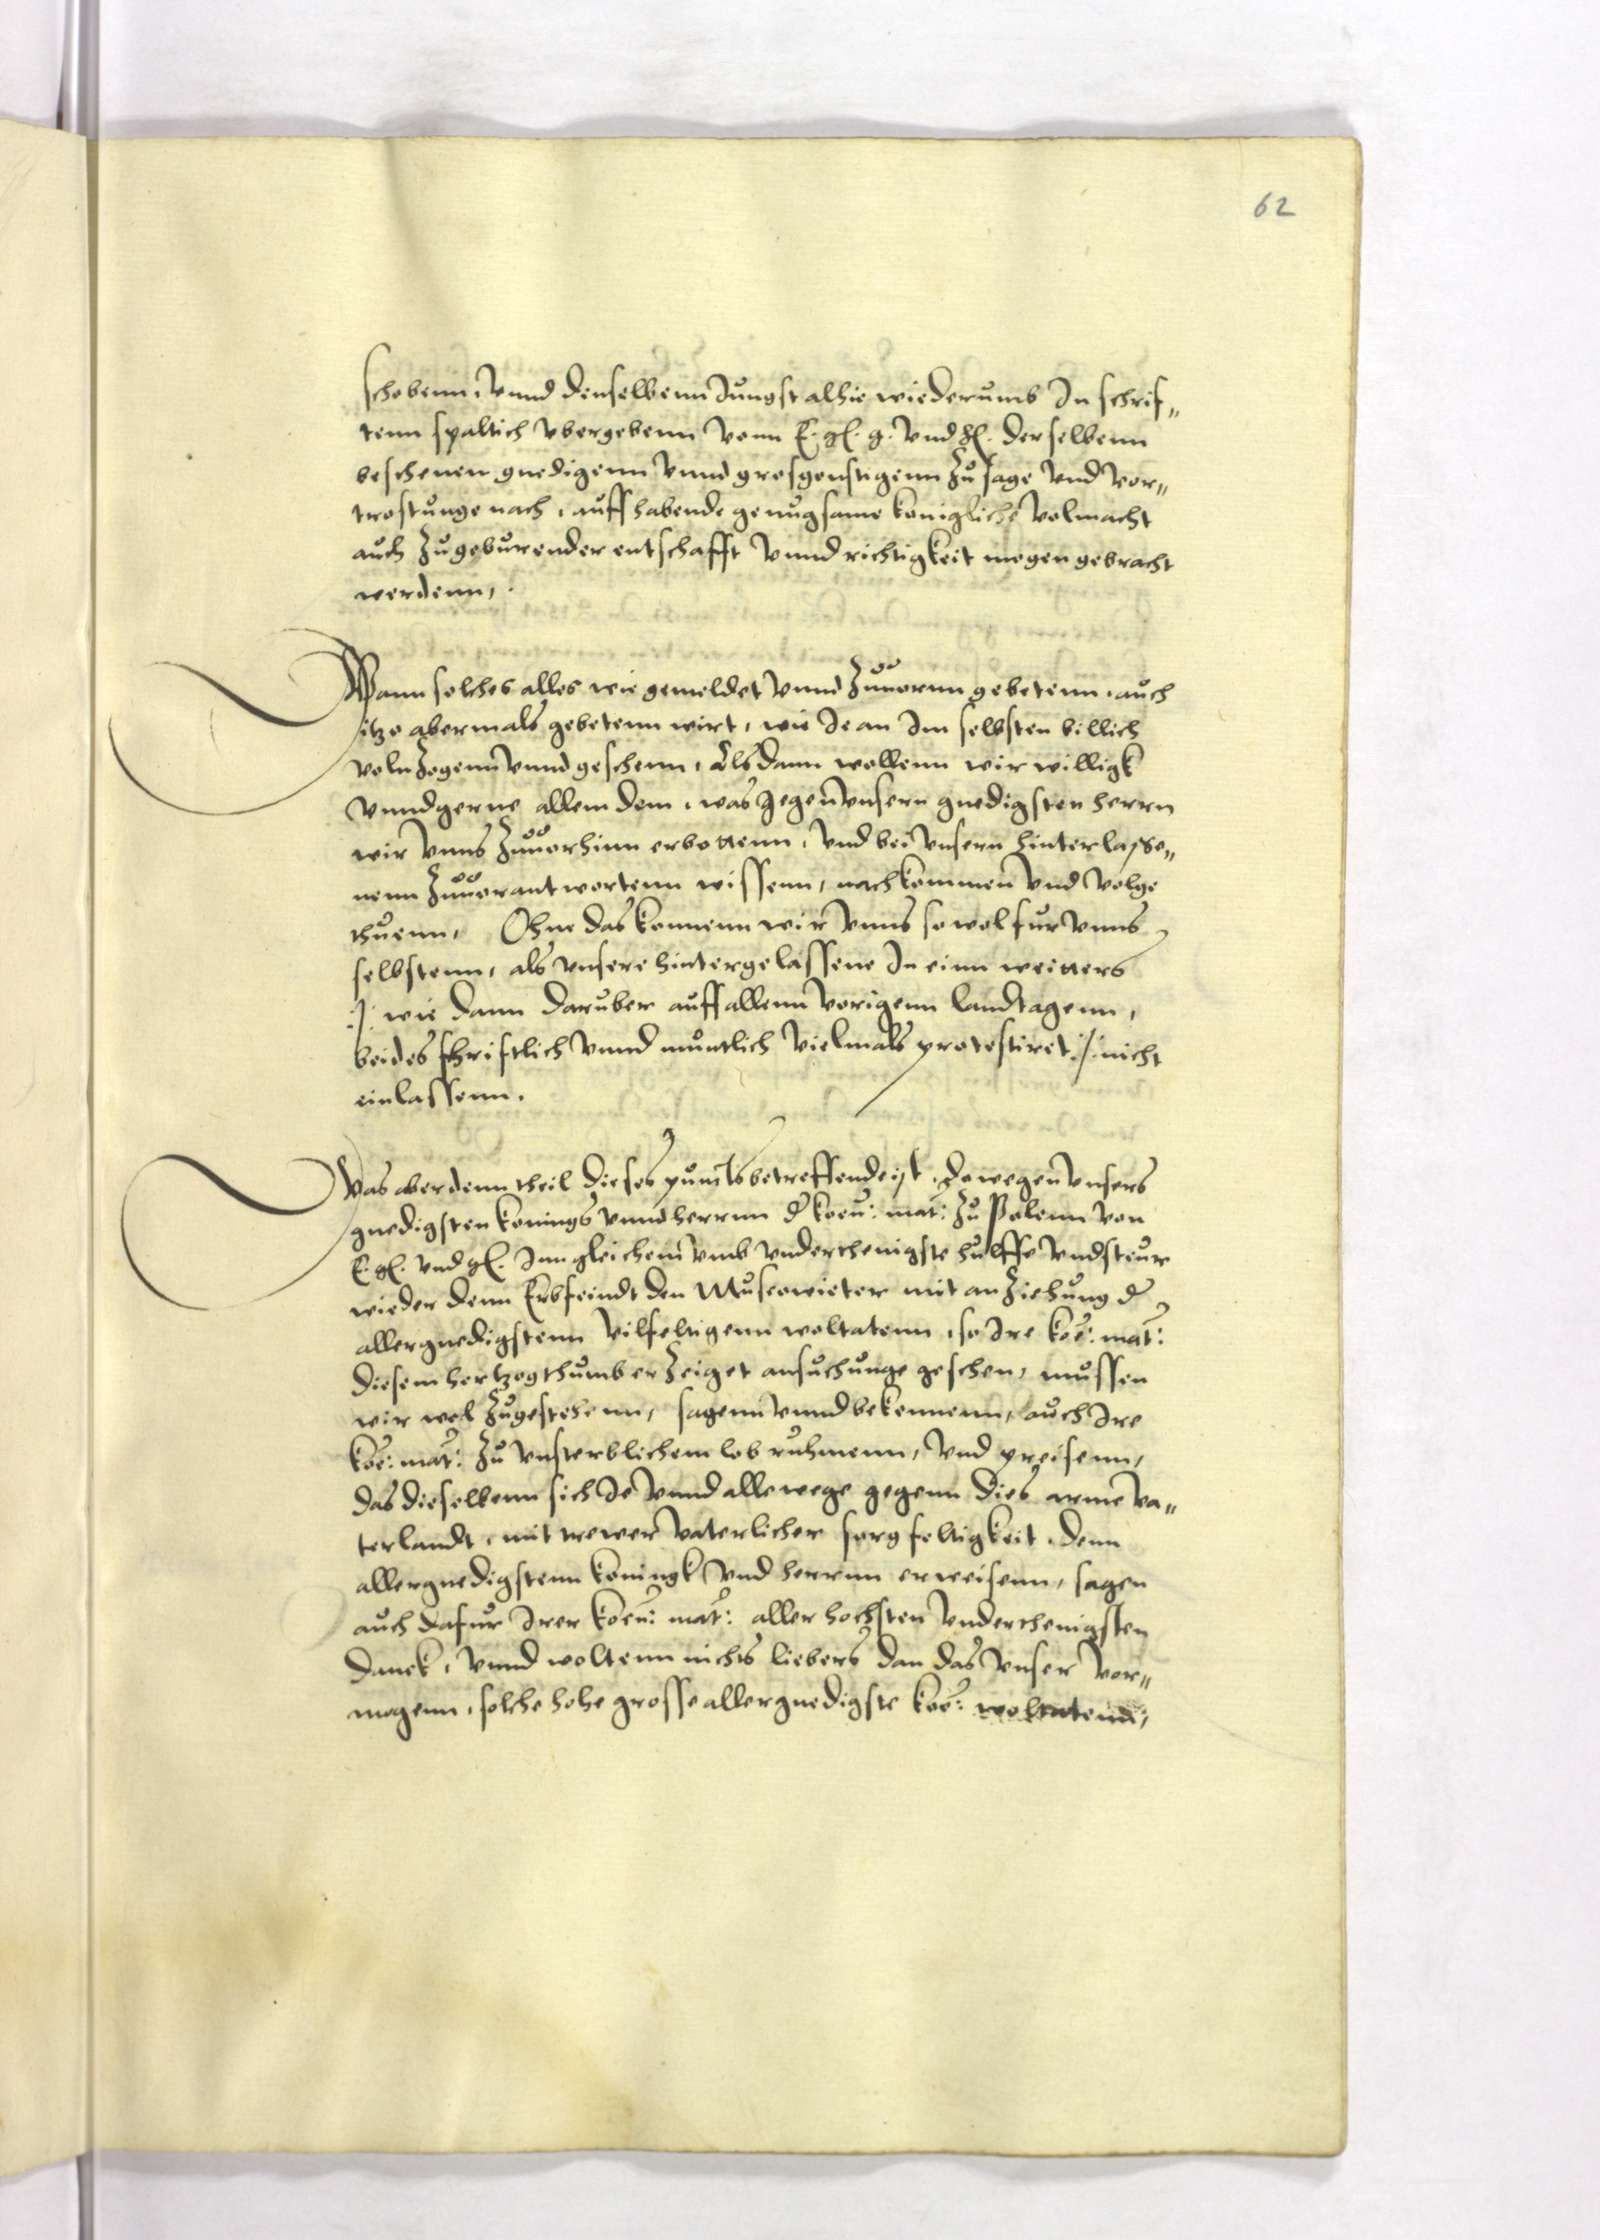 62
schobenn, vnnd denselbenn Jungst alhie wiederumb In schrif„
tenn spaltich vbergebenn vonn E. gl. g. vnd gl. derselbenn
beschenen gnedigenn vnnd grosgonstigenn Zusage vnd vor„
trostunge nach, auff habende genugsame konigliche volmacht
auch Zugeburender entschafft vnnd richtigkeit mogen gebracht
werdenn,
Wann solches alles wie gemeldet vnnd Zuuorenn gebetenn, auch
itzo abermals gebetenn wirt, wie Je an Im selbsten billich
volnZogenn vnnd geschenn, Als dann wollenn wir willigk
vnnd gerne allem dem, was gegen vnsern gnedigsten herrn
wir vnns Zuuorhinn erbottenn, vnd bei vnsern hinterlasse„
nenn Zuuorantwortenn wissenn, nachkommen vnd volge
thuenn, Ohne das konnenn wir vnns so wol fur vnns
selbstenn, als vnsere hintergelassene In einn weitters
/: wie dann daruber auff allenn vorigenn landtagenn,
beides schrifftlich vnnd muntlich vielmals protestiret :/ nicht
einlassenn.
Was aber denn theil dieses puncts betreffende ist, da wegen vnsers
gnedigsten konings vnnd herrnn d koen: mat: Zu Polenn von
E. gl. vnd gl. Inn gleichem vmb vnderthenigste hulffe vnd steur
wieder denn Erbfeindt den Muscowieter mit anZiehung d
allergnedigstenn vilfeltigenn woltatenn, so Ire koe: mat:
diesem hertzogthumb erZeiget ansuchunge geschen, mussen
wir wol Zugestehenn, sagenn vnnd bekennenn, auch Ire
koe: mat: Zu vnsterblichem lob ruhmenn, vnd preisenn,
das dieselbenn sich Je vnnd allewege gegenn dies arme va„
terlandt, mit trewer vaterlicher sorgfeltigkeit, denn
allergnedigstenn koningk vnd herrnn erweisenn, sagen
auch dafur Irer koen: mat: aller hochsten vnderthenigsten
danck, vnnd woltenn nichts liebers dan das vnser vor„
mogenn, solche hohe grosse allergnedigste koe: woltatenn,